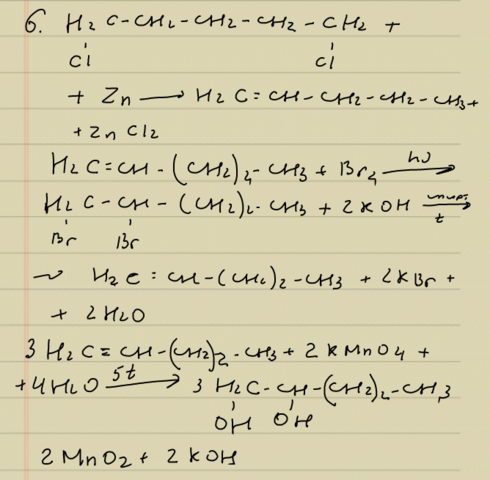 6. H₂C-CH₂-CH₂-CH₂-CH₂ +
Cl Cl
+ Zn → H₂C=CH-CH₂-CH₂-CH₃ +
+ ZnCl₂
H₂C=CH-(CH₂)₂-CH₃ + Br₂ hν →
H₂C-CH-(CH₂)₂-CH₃ + 2KOH спирт, t →
Br Br
→ H₂C=CH-(CH₂)₂-CH₃ + 2KBr +
+ 2H₂O
3H₂C=CH-(CH₂)₂-CH₃ + 2KMnO₄ +
+ 4H₂O 5t → 3H₂C-CH-(CH₂)₂-CH₃
OH OH
2MnO₂ + 2KOH